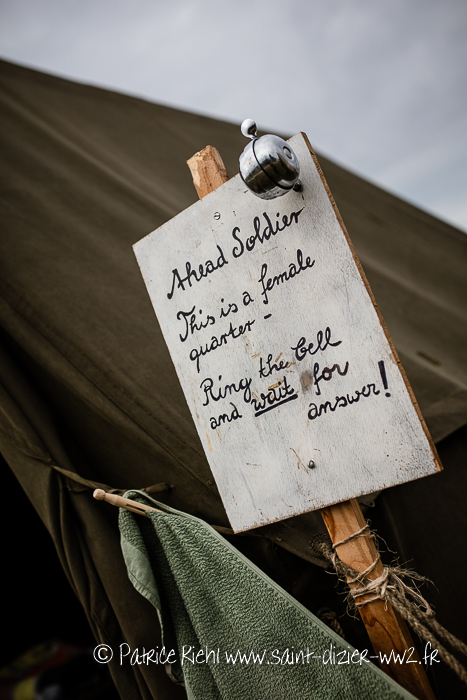 Ahead Soldier
This is a female
quarter -
Ring the bell
and wait for
answer!
© Patrice Kiehl www.saint-dizier-ww2.fr